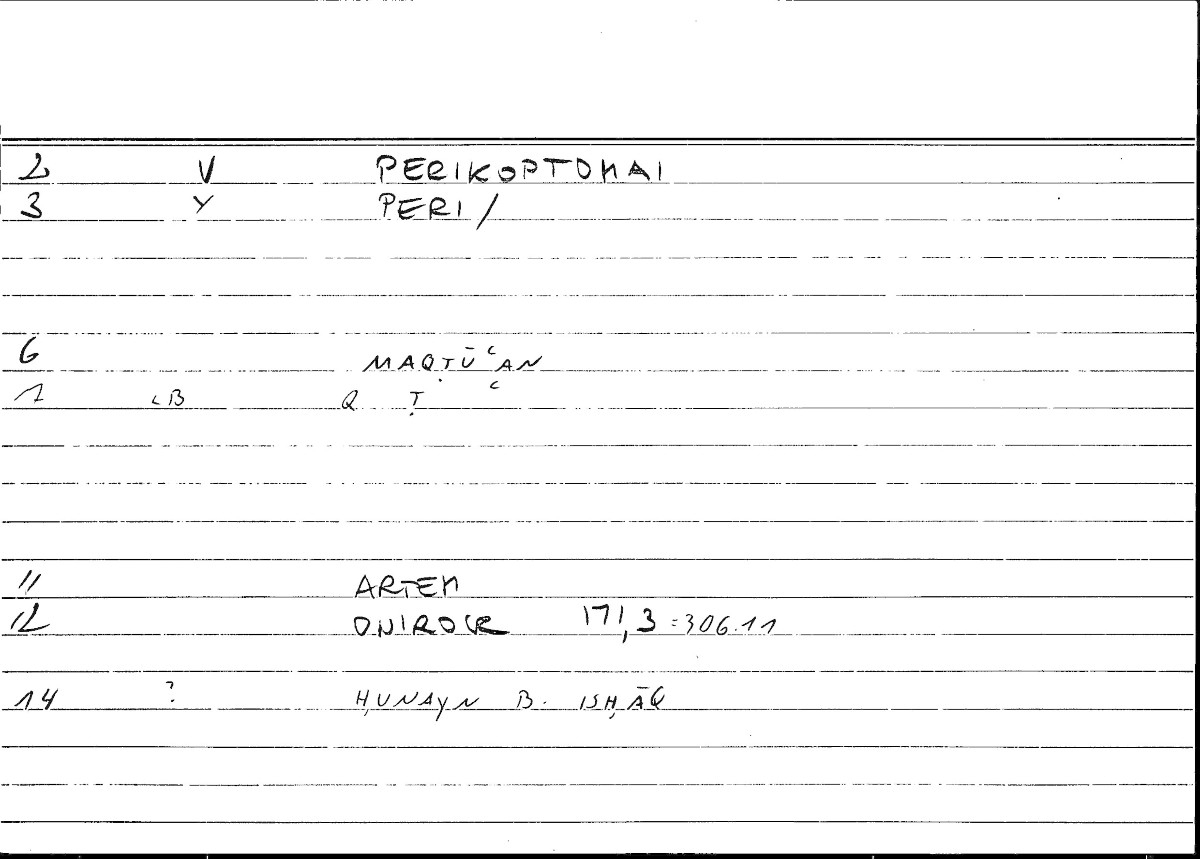 2 V PERIKOPTOMAI
3 Y PERI/
6 MAQṬŪʿAN
1 LB Q Ṭ ʿ
11 ARTEM
12 ONIROCR 171,3 = 306.11
14 ? ḤUNAYN B. ISḤĀQ